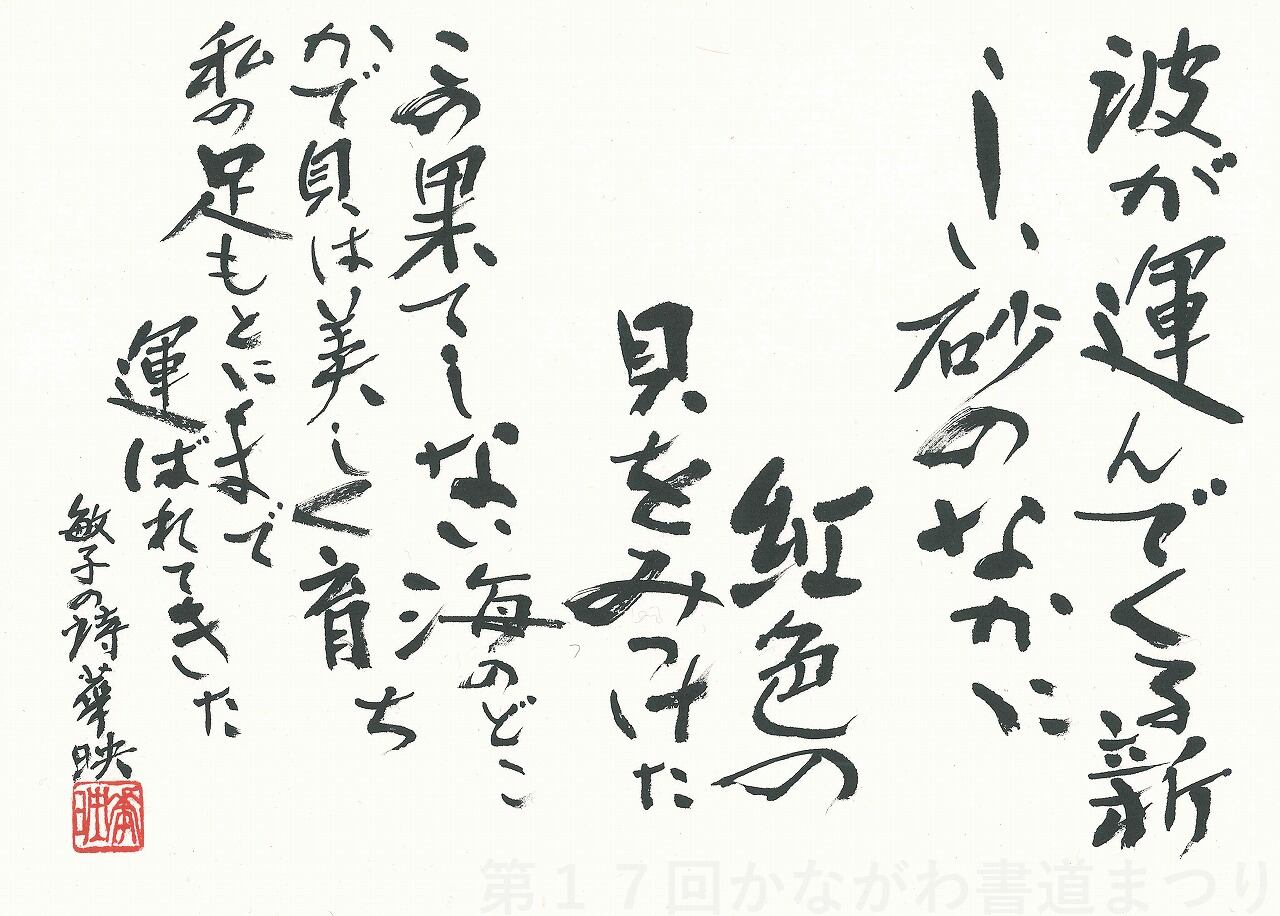 波が運んでくる新
しい砂のなかに
紅色の
貝をみつけた
この果てしない海のどこ
かで貝は美しく育ち
私の足もとにまで
運ばれてきた
敏子の詩 華映
華映
第17回かながわ書道まつり